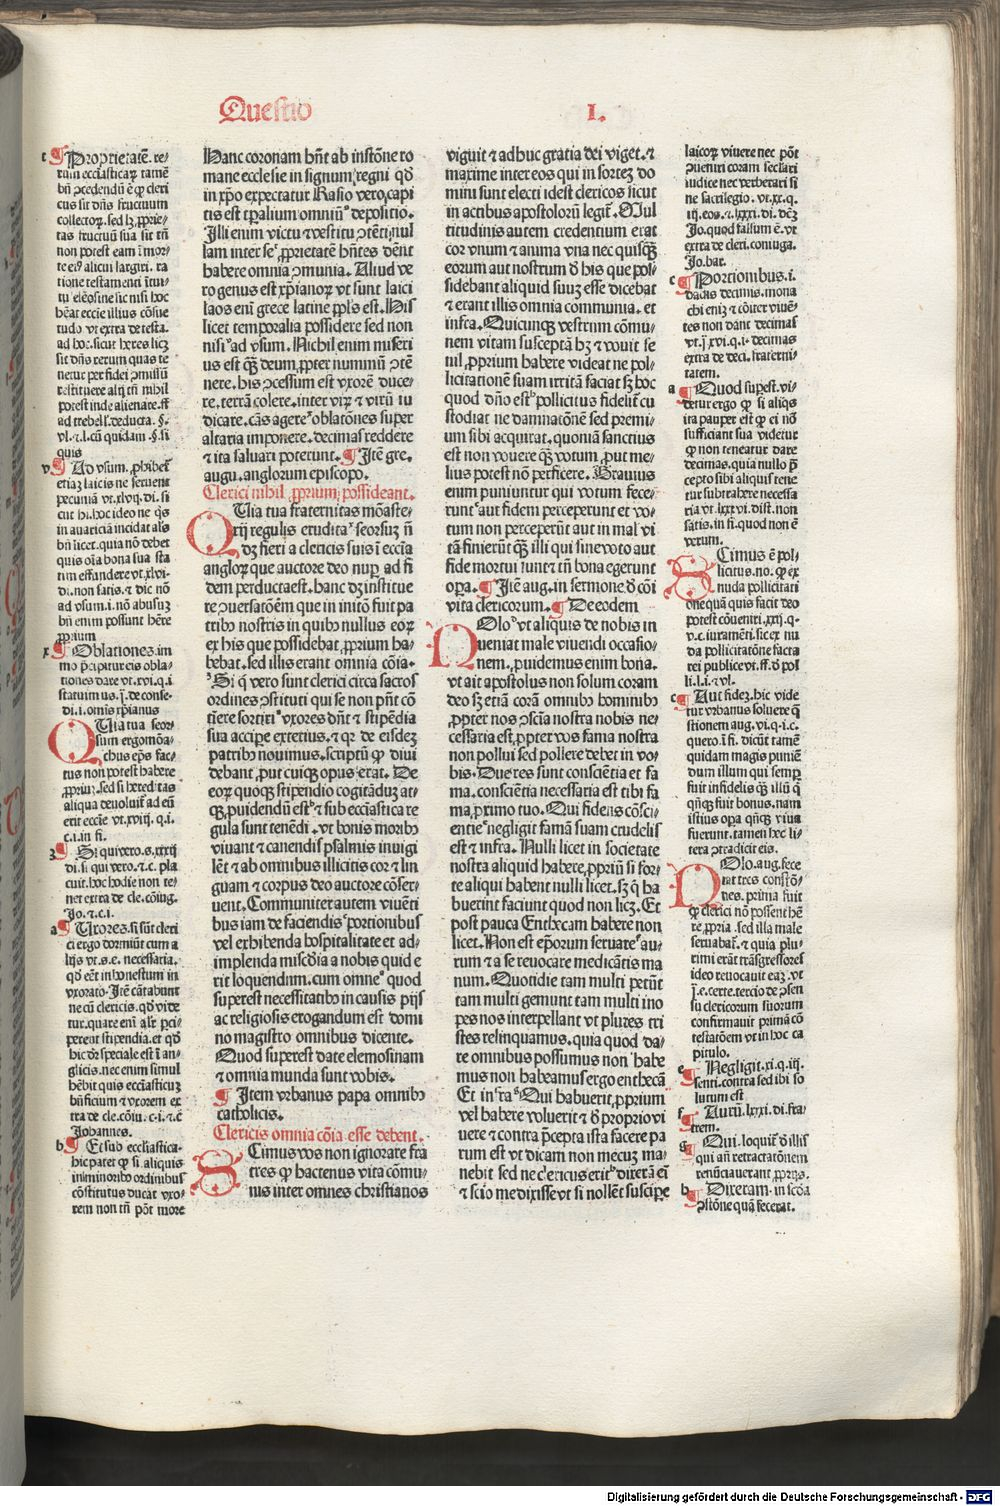 Questio
I.
t ¶ Proprietatē. re-
rum ecclasticaꝝ tamē
bñ ꝓcedendū ē ꝙ cleri
cus sit dñs fructuum
collectoꝝ. sed hꝫ ꝓprie-
tas fructuū sua sit tñ
non potest eam ī mor-
te eiꝰ alicui largiri. ra
tione testamenti
beat eccie illius cōsue
tudo vt extra de testa.
ad hoc. sicut heres licꝫ
sit dñs rerum quas te
netur per fidei ꝓmissū
restituere alij tñ nihil
potest inde alienare. ff
ad trebell. deducta. §.
vl. ⁊. l. cū quidam. §. si
quis
v ¶ Ad vsum. ꝓhibet̄
etiaꝫ laicis ne seruent
pecuniā vt. xlvij. di. si
cut hi. hoc ideo ne qͥs
in auariciā incidat alꝰ
bñ licet. quia nō debet
quis oīa bona sua sta
tim effundere vt. xlvi-
di. non satis. ⁊ dic nō
ad vsum. i. nō abusuꝫ
bñ enim possunt hēre
ꝓprium
x ¶ Oblationes. im
mo p̄cipitur eis obla-
tiones dare vt. xvi. q. i
statuimus. ꝫ. de conse-
di. i. omīs xp̄ianus
QUia tua seor
sum ergo mōa-
chus ep̄s fac-
tus non potest habere
ꝓpriuꝫ. sed si hereditas
aliqua deuoluit̄ ad eū
erit eccie vt. xviij. q. i.
c. i. in fi.
ʒ ¶ Si quivero. s. xxxij
di. si qui vero. ⁊. c. pla
cuit. hoc hodie non te-
net extra de cle. cōiug.
Jo. ⁊. c. i.
a ¶ Uxores. si sūt cleri
ci ergo dormiūt cum a
lijs vt. s. e. necessaria.
qď eēt inhonestum in
vxorato. Jtē cātabunt
ne cū clericis. qď vide
tur. quare enī alr̄ ꝑci-
perent stipendia. et qď
hic dr̄ speciale est ī an-
glicis. nec enim simul
hēbit quis ecclāsticuꝫ
bñficium ⁊ vxorem ex
tra de cle. cōiu. c. i. ⁊. c̄
Johannes.
b ¶ Et sub ecclastica-
hic patet ꝙ si. aliquis
in minoribꝰ ordinibus
cōstitutus ducat vxo-
rem non tñ pōt more
Hanc coronam hn̄t ab instōne ro
mane ecclesie in signum regni qď
in xp̄o expectatur Rasio vero capi
tis est tp̄alium omniū depositio.
Jlli enim victu ⁊ vestitu ꝯtēti nul
lam inter se ꝓprietatē hn̄tes dēnt
habere omnia ꝯmunia. Aliud ve
ro genus est xp̄ianoꝝ vt sunt laici
laos enī grece latine ppl̄s est. His
licet temporalia possidere sed non
nisi ad vsum. Nichil enim miseri
us est qꝫ deum ꝓpter nummū ꝯtē
nere. his ꝯcessum est vxorē duce-
re. terrā colere. inter virꝫ ⁊ virū iu
dicare. cās agere oblatōnes super
altaria imponere. decimas reddere
⁊ ita saluari poterunt. ¶ Jtē gre.
augu. anglorum episcopo.
Clerici nihil ꝓprium possideant.
QUia tua fraternitas mōaste-
rij regulis erudita seorsuꝫ ñ
dꝫ fieri a clericis suis ī eccīa
angloꝝ que auctore deo nuꝑ ad fi
dem perducta est. hanc dꝫ institue
re ꝯuersatōem que in initō fuit pa
tribꝰ nostris in quibꝰ nullus eoꝝ
ex his que possidebāt ꝓprium ha-
bebat. sed illis erant omnia cōia.
Si ꝗ vero sunt clerici circa sacros
ordines ꝯstituti qui se non pn̄t cō
tīere sortiri vxores dn̄t ⁊ stipēdia
sua acciꝑe exterius. ⁊ qꝛ de eisdeꝫ
patribꝰ nouimus. scriptū ꝙ diui
debant ꝓut cuiꝗꝫ opus erat. De
eoꝝ quoqꝫ stipendio cogitāduꝫ at-
qꝫ ꝓuidendū est ⁊ sub ecclasticare
gula sunt tenēdi. vt bonis moribꝰ
viuant ⁊ canendis psalmis inuigi
lēt ⁊ ab omnibus illicitis cor ⁊ lin
guam ⁊ corpus deo auctore cōser-
uent. Communiter autem viuēti
bus iam de faciendis portionibus
vel exhibenda hospitalitate et ad-
implenda mīscdīa a nobis quid e
rit loquendum. cum omne quod
superest necessitatibꝰ in causis pijs
ac religiosis erogandum est domi
no magistro omnibus dicente.
Quod superest date elemosinam
⁊ omnia munda sunt vobis.
¶ Jtem vrbanus papa omnibꝰ
catholicis.
Clericis omnia cōia esse debent.
SCimus vos non ignorare fra
tres ꝙ hactenus vita cōmu-
nis inter omnes christianos
viguit ⁊ adhuc gratia dei viget. ⁊
maxime inter eos qui in sortez do
mini sunt electi idest clericos sicut
in actibus apostolorū legit̄. Mul
titudinis autem credentium erat
cor vnum ⁊ anima vna nec quisqꝫ
eorum aut nostrum ď his que pos-
sidebant aliquid suuꝫ esse dicebat
⁊ erant illis omnia communia. et
infra. Quicunqꝫ vestrum cōmu-
nem vitam susceptā hꝫ ⁊ vouit se
nil ꝓprium habere videat ne pol-
licitationē suam irritā faciat sꝫ hoc
quod dño est pollicitus fidelit̄ cu
stodiat ne damnatōnē sed premi-
um sibi acquirat. quoniā sanctius
est non vouere qꝫ votum put me-
lius potest nō perficere. Grauius
enim puniuntur qui votum fece-
runt aut fidem perceperunt et vo-
tum non perceperūt aut in mal vi
tā finierūt qꝫ illi qui sine voto aut
fide mortui sunt ⁊ tñ bona egerunt
oꝑa. ¶ Jtē aug. in sermone ď cōi
vita clericorum. ¶ De eodem
NOlo vt aliquis de nobis in
ueniat male viuendi occasio-
nem. ꝓuidemus enim bona.
vt ait apostolus non solum coram
deo sꝫ etiā corā omnibꝰ hominibꝰ
ꝓpter nos ꝯscīa nostra nobis ne-
cessaria est. ꝓpter vos fama nostra
non pollui sed pollere debet in vo-
bis. Due res sunt conscīētia et fa
ma. conscīētia necessaria est tibi fa
ma ꝓximo tuo. Qui fidens cōsci-
entie negligit famā suam crudelis
est ⁊ infra. Nulli licet in societate
nostra aliquid habere ꝓpriū si for-
te aliqui habent nulli licet. sꝫ ꝗ ha
buerint faciunt quod non licꝫ. Et
post pauca Enthecam habere non
licet. Non est ep̄orum seruare au-
rum ⁊ a se reuocare medicātis ma
num. Quotidie tam multi petūt
tam multi gemunt tam multi ino
pes nos interpellant vt plures tri
stes relinquamus. quia quod da-
re omnibus possumus non habe
mus non habeamus ergo enthecā
Et infra Qui habuerit ꝓprium
vel habere voluerit ⁊ ď proprio vi
uere ⁊ contra p̄cepta ista facere pa
rum est vt dicam non mecuꝫ ma-
nebit sed nec clericus erit dixerā eī
⁊ scio me dixisse vt si nollēt susciꝑe
laicoꝝ viuere nec pōt
ꝯueniri coram seclari
iudice nec verberari si
ne sacrilegio. vt. xx. q.
iij. eos. ⁊. lxxxi. di. dꝫ
Jo. quod falsum ē. vt
extra de cleri. coniuga.
Jo. bat.
c ¶ Portionibus. i.
dādis decimis. mona
chi enīꝫ ⁊ cōiter viuē-
tes non dant decimas
vt. ꝫ. xvi. q. i. decimas
extra de deci. fraterni-
tatem.
a ¶ Quod suꝑest. vi-
detur ergo ꝙ si aliqͥs
ita pauper est ꝙ ei nō
sufficiant sua videtur
ꝙ non teneatur dare
decimas. quia nullo p̄
cepto sibi aliquis tene
tur subtrahere necessa
ria vt. lxxxvi. dist. non
satis. in fi. quod non ē
verum.
SCimus ē pol-
licitus. no. ꝙ ex
nuda pollicitati
one quā quis facit deo
potest cōueniri. xxij. q-
v. c. iuramēti. sic ex nu
da pollicitatōne facta
rei publice vt. ff. ď pol
li. l. i. ⁊ vl.
c ¶ Aut fideꝫ. hic vide
tur vrbanus soluere q̄
stionem aug. vi. q. i. c.
quero. ī fi. dicūt tamē
quidam magis puniē
dum illum qui semꝑ
fuit infidelis qꝫ illū ꝗ
qñqꝫ fuit bonus. nam
istius oꝑa qñqꝫ viua
fuerunt. tamen hec li-
tera ꝯtradicit eis.
NOlo. aug. fece
rat tres constō-
nes. prima fuit
ꝙ clerici nō possent hē
re ꝓpria. sed illa male
seruabat̄. ⁊ quia plu-
rimi erāt trāsgressores
ideo reuocauit eaꝫ. vt
ꝫ. e. certe. tercio de ꝯsen
su clericorum suorum
confirmauit primā cō
testatōem vt in hoc ca
pitulo.
e ¶ Negligit. xi. q. iij.
senti. contra sed ibi so
lutum est
f ¶ Auru. lxxxi. di. fra-
trem.
g ¶ Qui. loquit̄ ď illis
qui añ retractatōnem
renūciauerant ꝓprijs.
h ¶ Dixeram. in scďa
ꝯstōne quā fecerat.
Digitalisierung gefördert durch die Deutsche Forschungsgemeinschaft - DFG